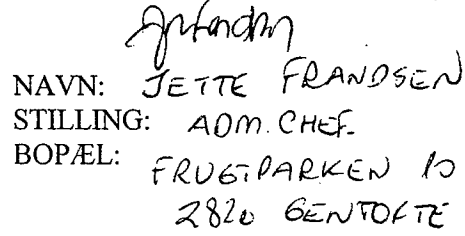 NAVN: JETTE FRANDSEN
STILLING: ADM. CHEF.
BOPÆL: FRUGTPARKEN
2820 GENTOFTE